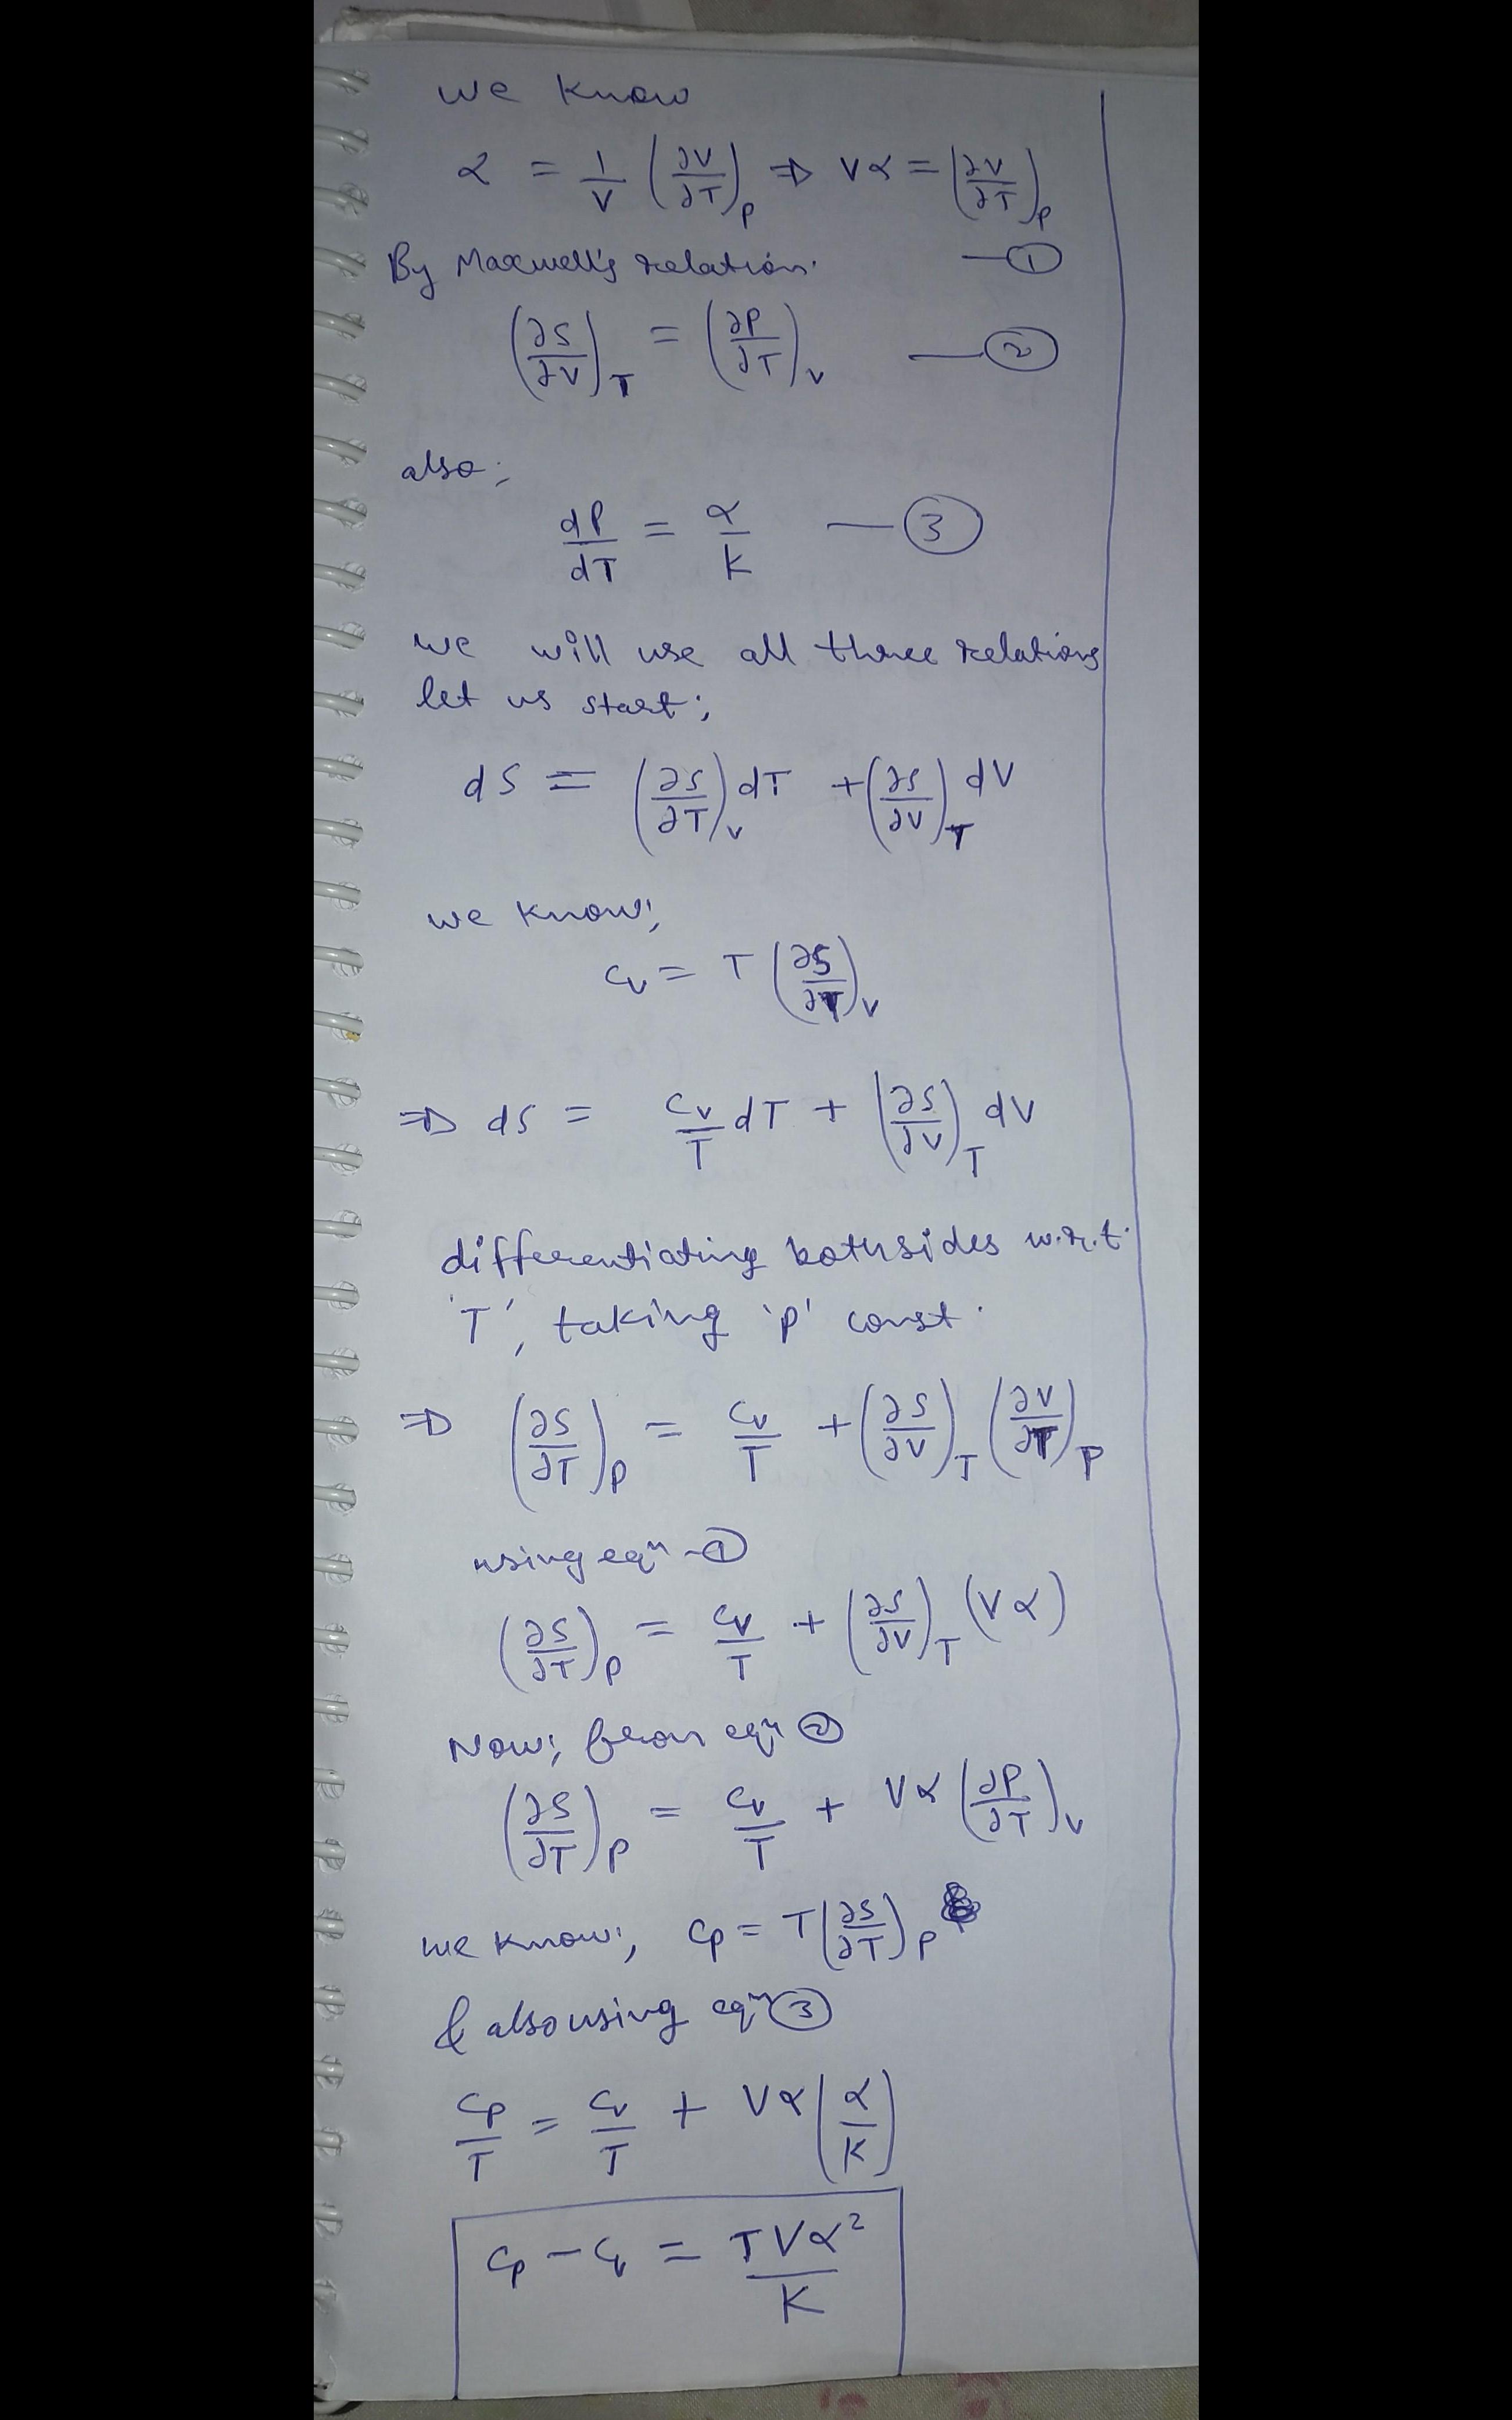 we know
α = 1/V (∂V/∂T)P ⇒ Vα = (∂V/∂T)P
By Maxwell's relation. —①
(∂S/∂V)T = (∂P/∂T)V —②
also;
dP/dT = α/K —③
we will use all three relations
let us start;
dS = (∂S/∂T)V dT + (∂S/∂V)T dV
we know;
Cv = T (∂S/∂T)V
⇒ dS = Cv/T dT + (∂S/∂V)T dV
differentiating bothsides w.r.t.
'T', taking 'P' const.
⇒ (∂S/∂T)P = Cv/T + (∂S/∂V)T (∂V/∂T)P
using eqn -①
(∂S/∂T)P = Cv/T + (∂S/∂V)T (Vα)
Now; from eqn ②
(∂S/∂T)P = Cv/T + Vα (∂P/∂T)V
we know; Cp = T(∂S/∂T)P
& also using eqn ③
Cp/T = Cv/T + Vα(α/K)
Cp - Cv = TVα²/K